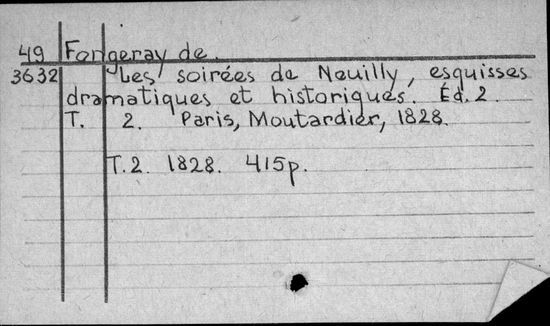 49 Fongeray de.
3632 Les soirées de Neuilly, esquisses
dramatiques et historiques. Éd. 2.
T. 2. Paris, Moutardier, 1828.
T. 2. 1828. 415p.